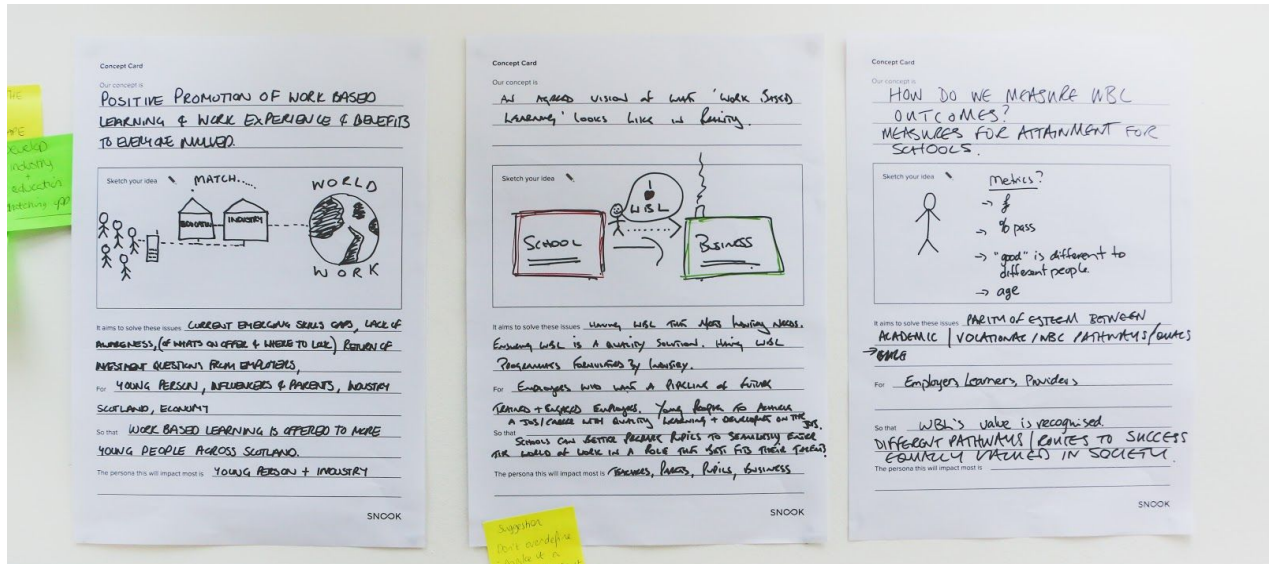 THE
developed
industry
+
education
matching app
Concept Card
Our concept is
POSITIVE PROMOTION OF WORK BASED
LEARNING & WORK EXPERIENCE & BENEFITS
TO EVERYONE INVOLVED.
Sketch your idea
MATCH.....
EDUCATION
INDUSTRY
WORLD
WORK
It aims to solve these issues CURRENT EMERGING SKILLS GAPS, LACK OF
AWARENESS, (OF WHATS ON OFFER & WHERE TO LOOK) RETURN OF
INVESTMENT QUESTIONS FROM EMPLOYERS,
For YOUNG PERSON, INFLUENCERS & PARENTS, INDUSTRY
SCOTLAND, ECONOMY
So that WORK BASED LEARNING IS OFFERED TO MORE
YOUNG PEOPLE ACROSS SCOTLAND.
The persona this will impact most is YOUNG PERSON + INDUSTRY
SNOOK
Concept Card
Our concept is
AN AGREED VISION OF WHAT 'WORK BASED
LEARNING' LOOKS LIKE IN REALITY.
Sketch your idea
I
WBL
SCHOOL
BUSINESS
It aims to solve these issues HAVING WBL THAT MEETS INDUSTRY NEEDS.
ENSURING WBL IS A QUALITY SOLUTION. HAVING WBL
PROGRAMMES FORMULATED BY INDUSTRY.
For EMPLOYERS WHO WANT A PIPELINE OF FUTURE
TRAINED + ENGAGED EMPLOYEES. YOUNG PEOPLE TO ACHIEVE
A JOB/CAREER WITH QUALITY LEARNING + DEVELOPMENT ON THE JOB.
So that SCHOOLS CAN BETTER PREPARE PUPILS TO SEAMLESSLY ENTER
THE WORLD OF WORK IN A ROLE THAT BEST FITS THEIR TALENTS.
The persona this will impact most is TEACHERS, PARENTS, PUPILS, BUSINESS
SNOOK
Suggestion
Don't overdefine
Concept Card
Our concept is
HOW DO WE MEASURE WBL
OUTCOMES?
MEASURES FOR ATTAINMENT FOR
SCHOOLS.
Sketch your idea
Metrics?
→ £
→ % pass
→ "good" is different to
different people
→ age
It aims to solve these issues PARITY OF ESTEEM BETWEEN
ACADEMIC / VOCATIONAL / WBL PATHWAYS / QUALS
For Employers Learners, Providers
So that WBL's value is recognised.
DIFFERENT PATHWAYS / ROUTES TO SUCCESS
EQUALLY VALUED IN SOCIETY.
The persona this will impact most is
SNOOK